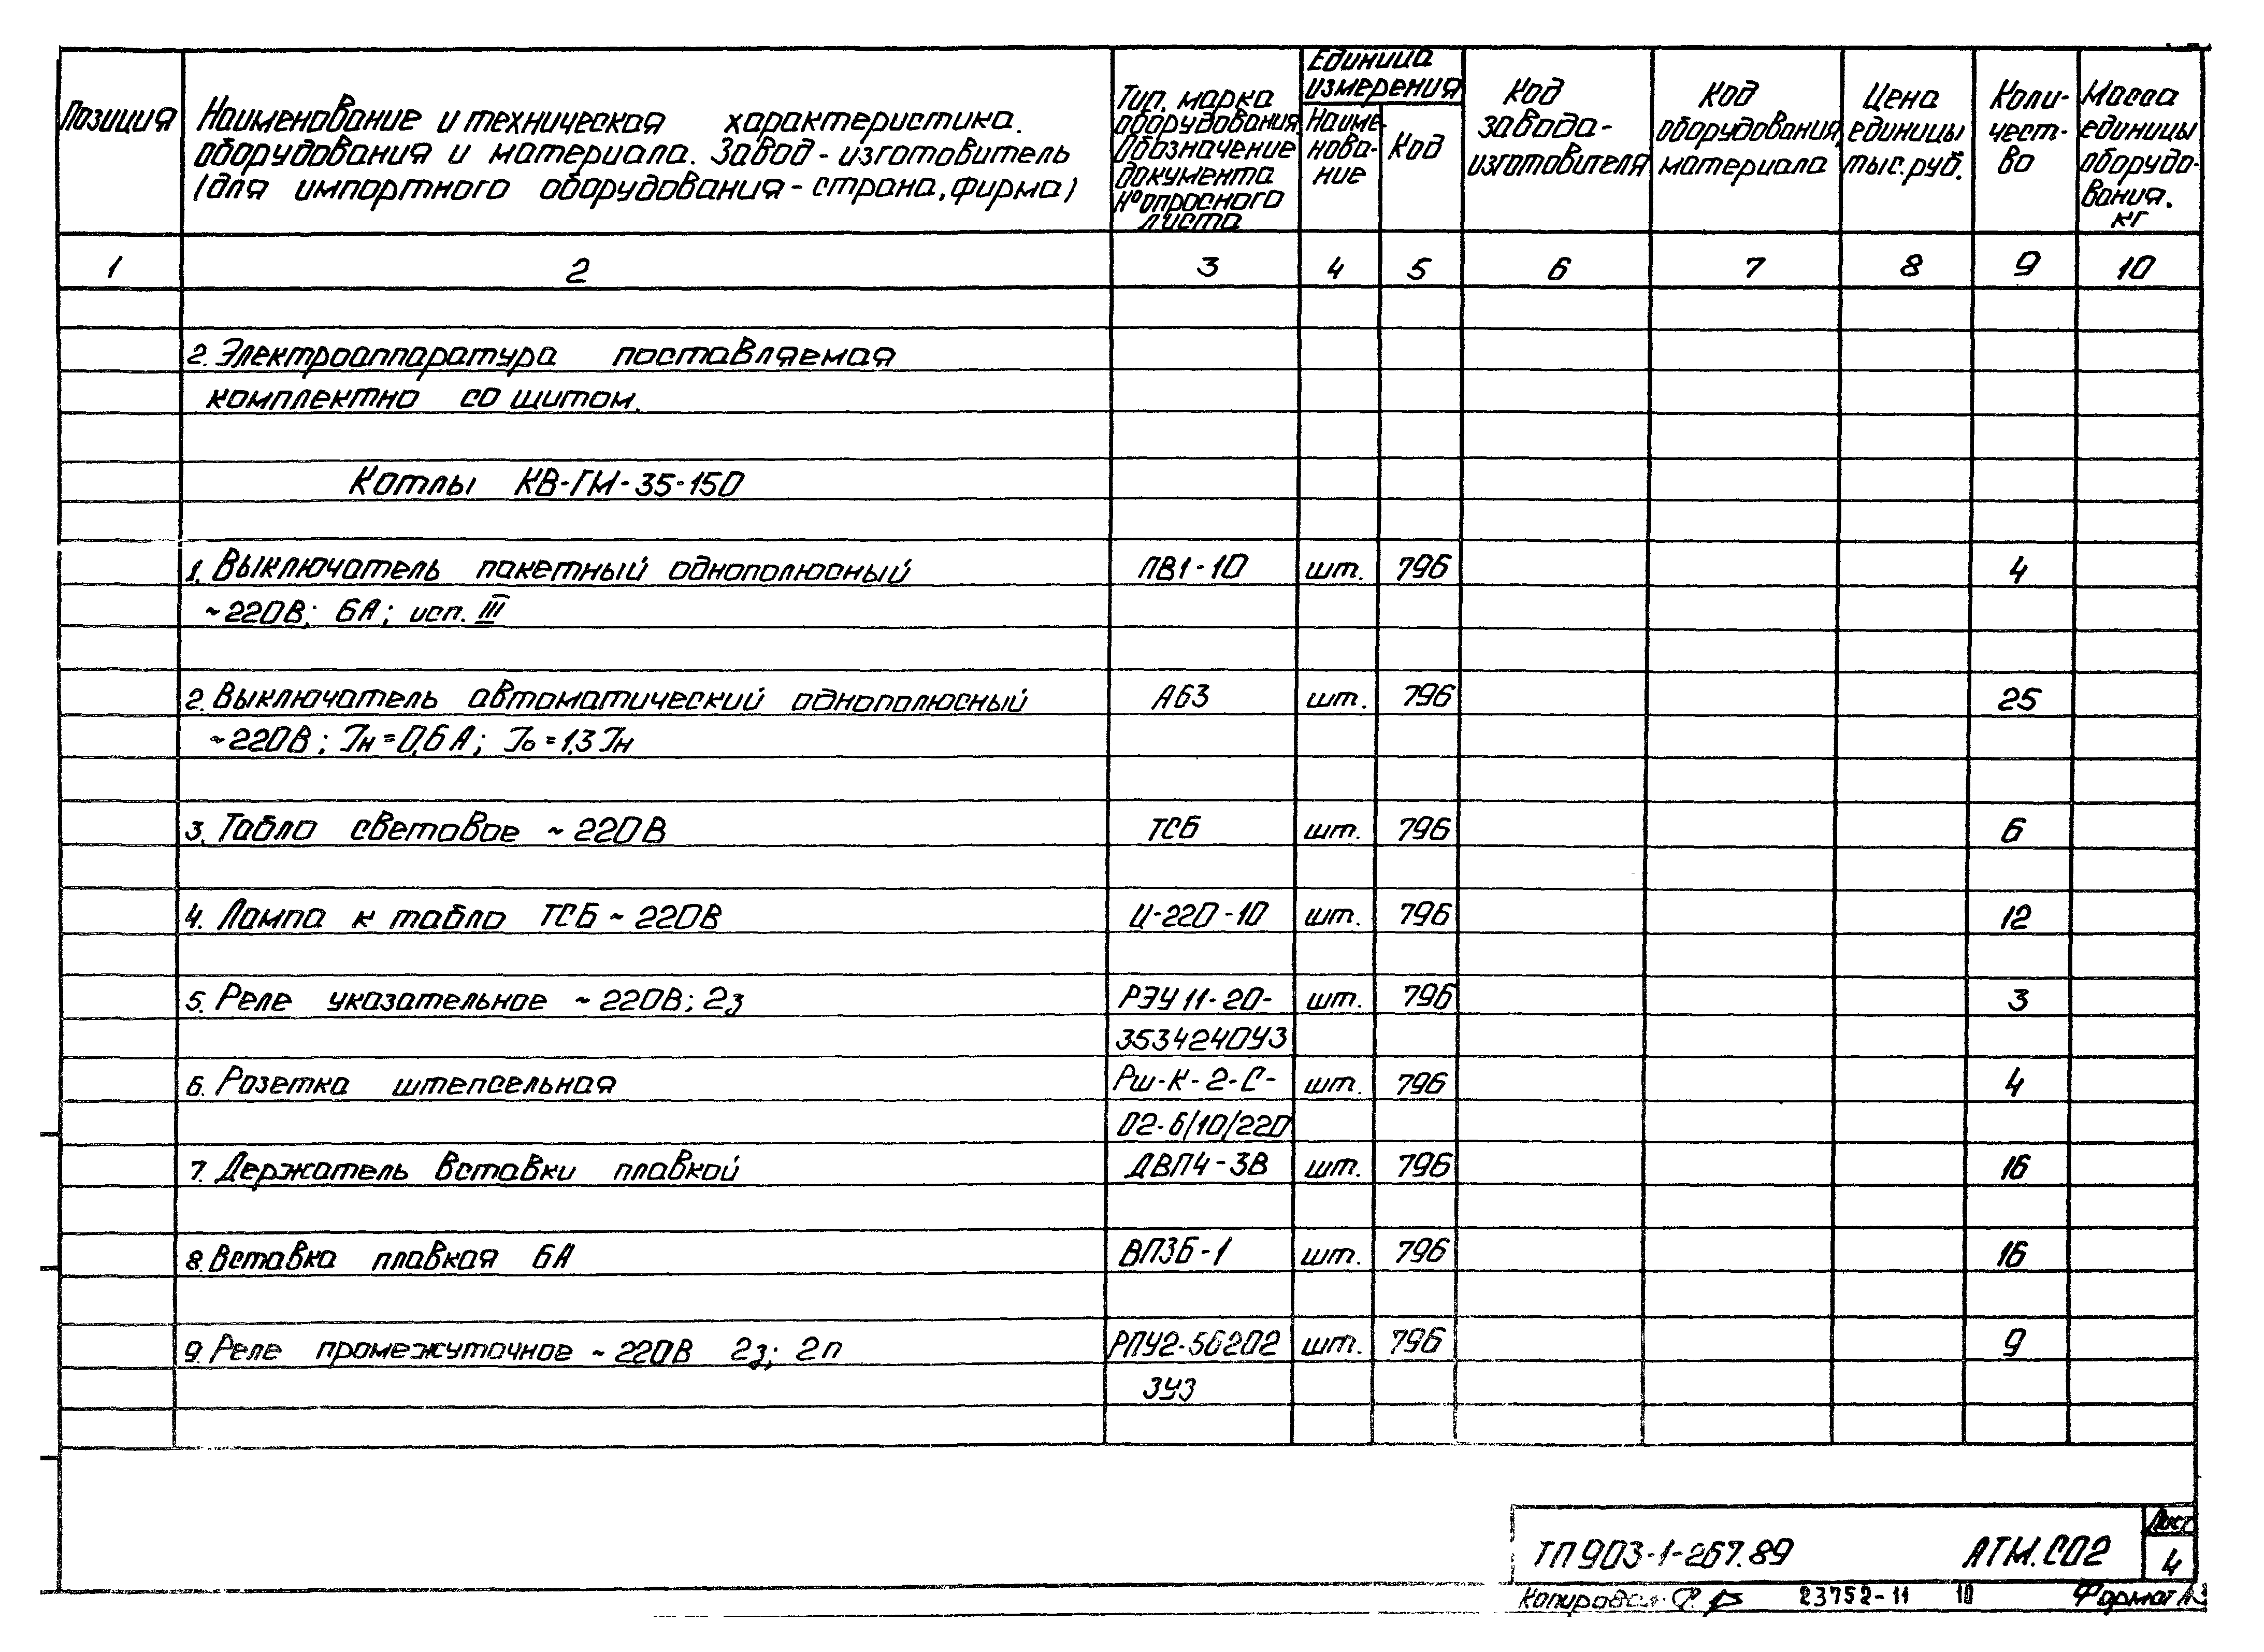 Позиция
Наименование и техническая характеристика.
оборудования и материала. Завод-изготовитель
(для импортного оборудования - страна, фирма)
Тип, марка
оборудования
Обозначение
документа
№ опросного
листа
Единица
измерения
Наиме-
нова-
ние
Код
Код
завода-
изготовителя
Код
оборудования,
материала
Цена
единицы
тыс.руб.
Коли-
чест-
во
Масса
единицы
оборудо-
вания.
кг
1 2 3 4 5 6 7 8 9 10
2. Электроаппаратура поставляемая
комплектно со щитом.
Котлы КВ-ГМ-35-150
1. Выключатель пакетный однополюсный ПВ1-10 шт. 796 4
~220В; 6А; исп. III
2. Выключатель автоматический однополюсный А63 шт. 796 25
~220В; Iн=0,6А; Iо=1,3Iн
3. Табло световое ~220В ТСБ шт. 796 6
4. Лампа к табло ТСБ ~220В Ц-220-10 шт. 796 12
5. Реле указательное ~220В; 2з РЭУ11-20- шт. 796 3
3534240У3
6. Розетка штепсельная Рш-К-2-С- шт. 796 4
02-6/10/220
7. Держатель вставки плавкой ДВП4-3В шт. 796 16
8. Вставка плавкая 6А ВП3Б-1 шт. 796 16
9. Реле промежуточное ~220В 2з; 2п РПУ2-56202 шт. 796 9
3У3
ТП 903-1-267.89 АТМ.СО2
Лист
4
Копировал 23752-11 10 Формат